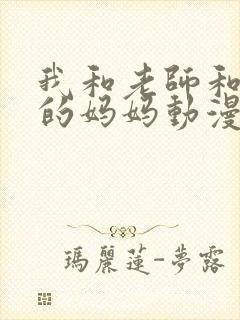 我和老師和
的妈妈動漫
瑪麗蓮-夢露